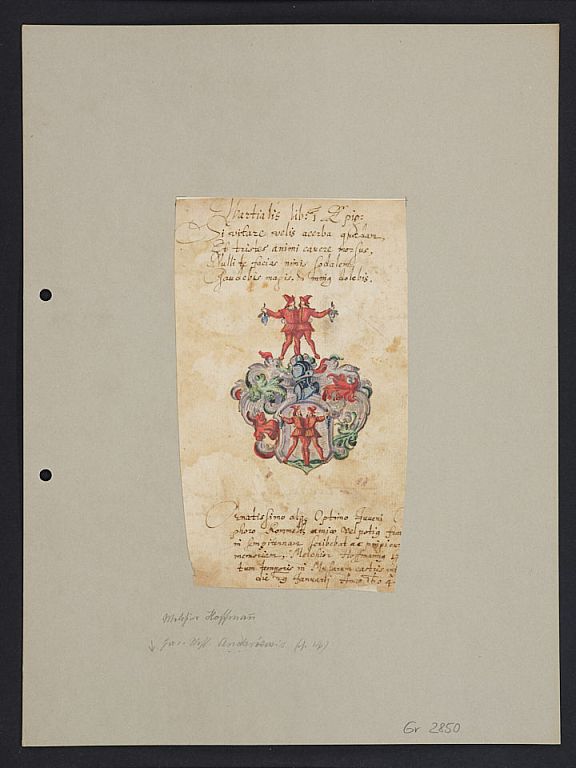 Martialis lib: Epig:
Si vitare velis acerba quædam,
Et tristes animi cavere morsus,
Nulli te facias nimis sodalem,
Gaudebis magis, & minus dolebis.
Ornatissimo atque Optimo Juveni
phoro amico vel potius
in sempiternam scribebat ac
memoriam, Melchior Hoffmannus
tum temporis in Musarum castris
die 29 Januarii Anno 1604
Melchior Hoffmann
Gr 2850